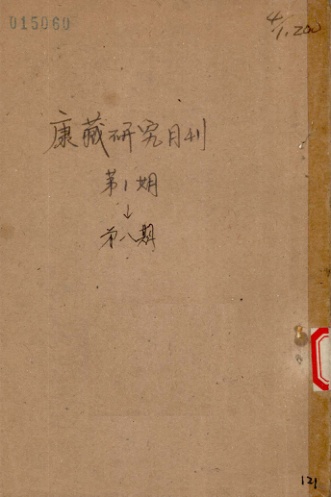 015060
4/1,200
康藏研究月刊
第1期
↓
第八期
121